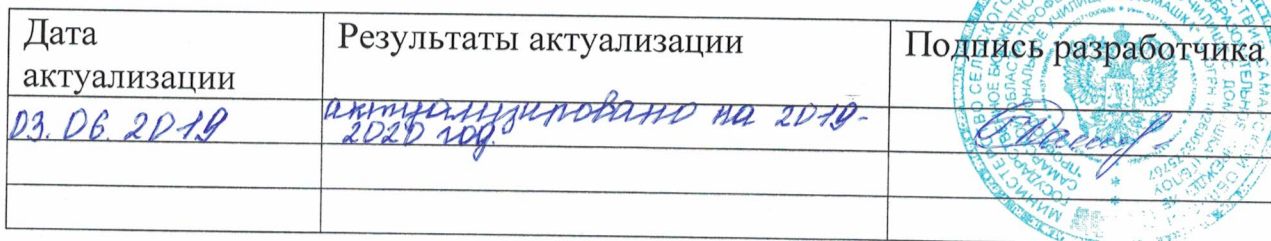 Дата актуализации
Результаты актуализации
Подпись разработчика
03.06.2019
актуализировано на 2019-
2020 год.